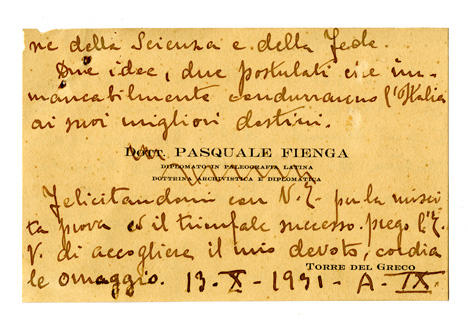 ne della Scienza e della Fede.
Due idee, due postulati che im-
mancabilmente condurranno l'Italia
ai suoi migliori destini.
Dott. PASQUALE FIENGA
DIPLOMATO IN PALEOGRAFIA LATINA
DOTTRINA ARCHIVISTICA E DIPLOMATICA
Felicitandomi con V. E. per la riusci-
ta prova ed il trionfale successo. prego l'E.
V. di accogliere il mio devoto, cordia
le omaggio. 13-X-1931-A-IX.
TORRE DEL GRECO